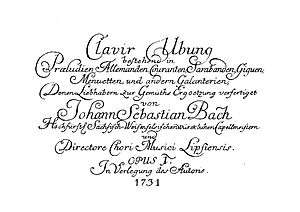 Clavir Ubung
bestehend in
Præludien, Allemanden, Couranten, Sarabanden, Giquen,
Menuetten, und andern Galanterien;
Denen Liebhabern zur Gemüths Ergoetzung verfertiget
von
Johann Sebastian Bach
Hochfürstl Sächsisch-Weisenfelsischen würcklichen Capellmeistern
und
Directore Chori Musici Lipsiensis.
OPUS I.
In Verlegung des Autoris.
1731